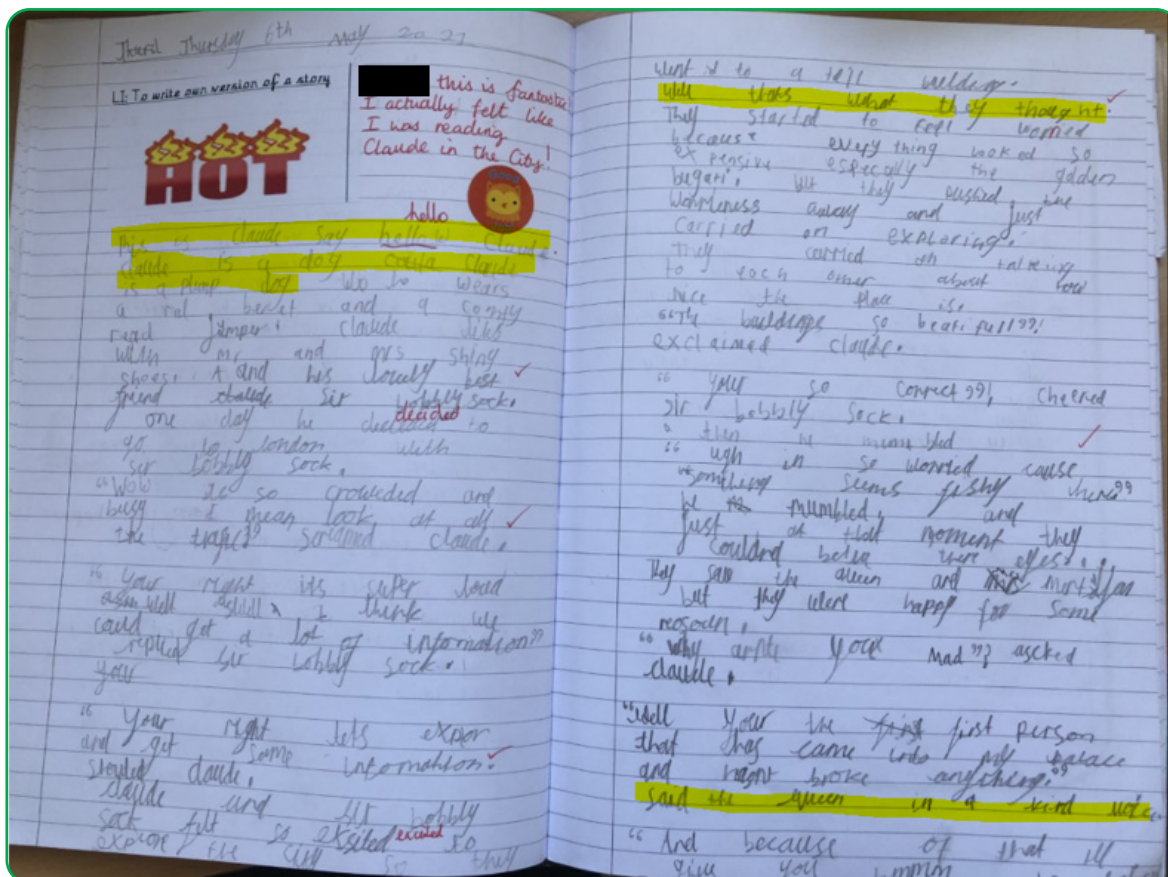 Thursday 6th May 2021
LI: To write own version of a story
HOT
this is fantastic
I actually felt like
I was reading
Claude in the City!
hello
This is claude say hellow Claude.
claude is a dog Claude
is a plump dog Who wears
a red beret and a
read jumper. claude
with mr and mrs shiny
shoes. And his lovely best
friend Sir bobbly sock.
decided
one day he to
go to london with
ser bobbly sock.
"Wow so crowded and
busy I mean look at all
the claude.
"Your right its super loud
aswell I think we
could get a lot of information"
replied sir bobbly sock.
your
"Your right lets explor
and get some information.
claude.
claude and sir bobbly
sock felt so exsited excited to
explore the city so they
went to a tall
Well thats what they thought.
They started to feel worried
because every thing looked so
expensive especally the golden
but they pushed
away and just
carried on exploring.
They carried on talking
to each other about how
nice the place is.
buildings so
exclaimed claude.
"Your so correct"! cheered
sir bobbly sock.
then he mumbled
"ugh im so worried cause
something seems fishy here"
he mumbled, and
just at that moment they
there eyes.
They saw the queen and
but they were happy for some
"Why arnt your mad"? ascked
claude.
"Well your the first person
that has came into my palace
and hasnt broke anything"
said the queen in a kind
"And because of that ill
give you